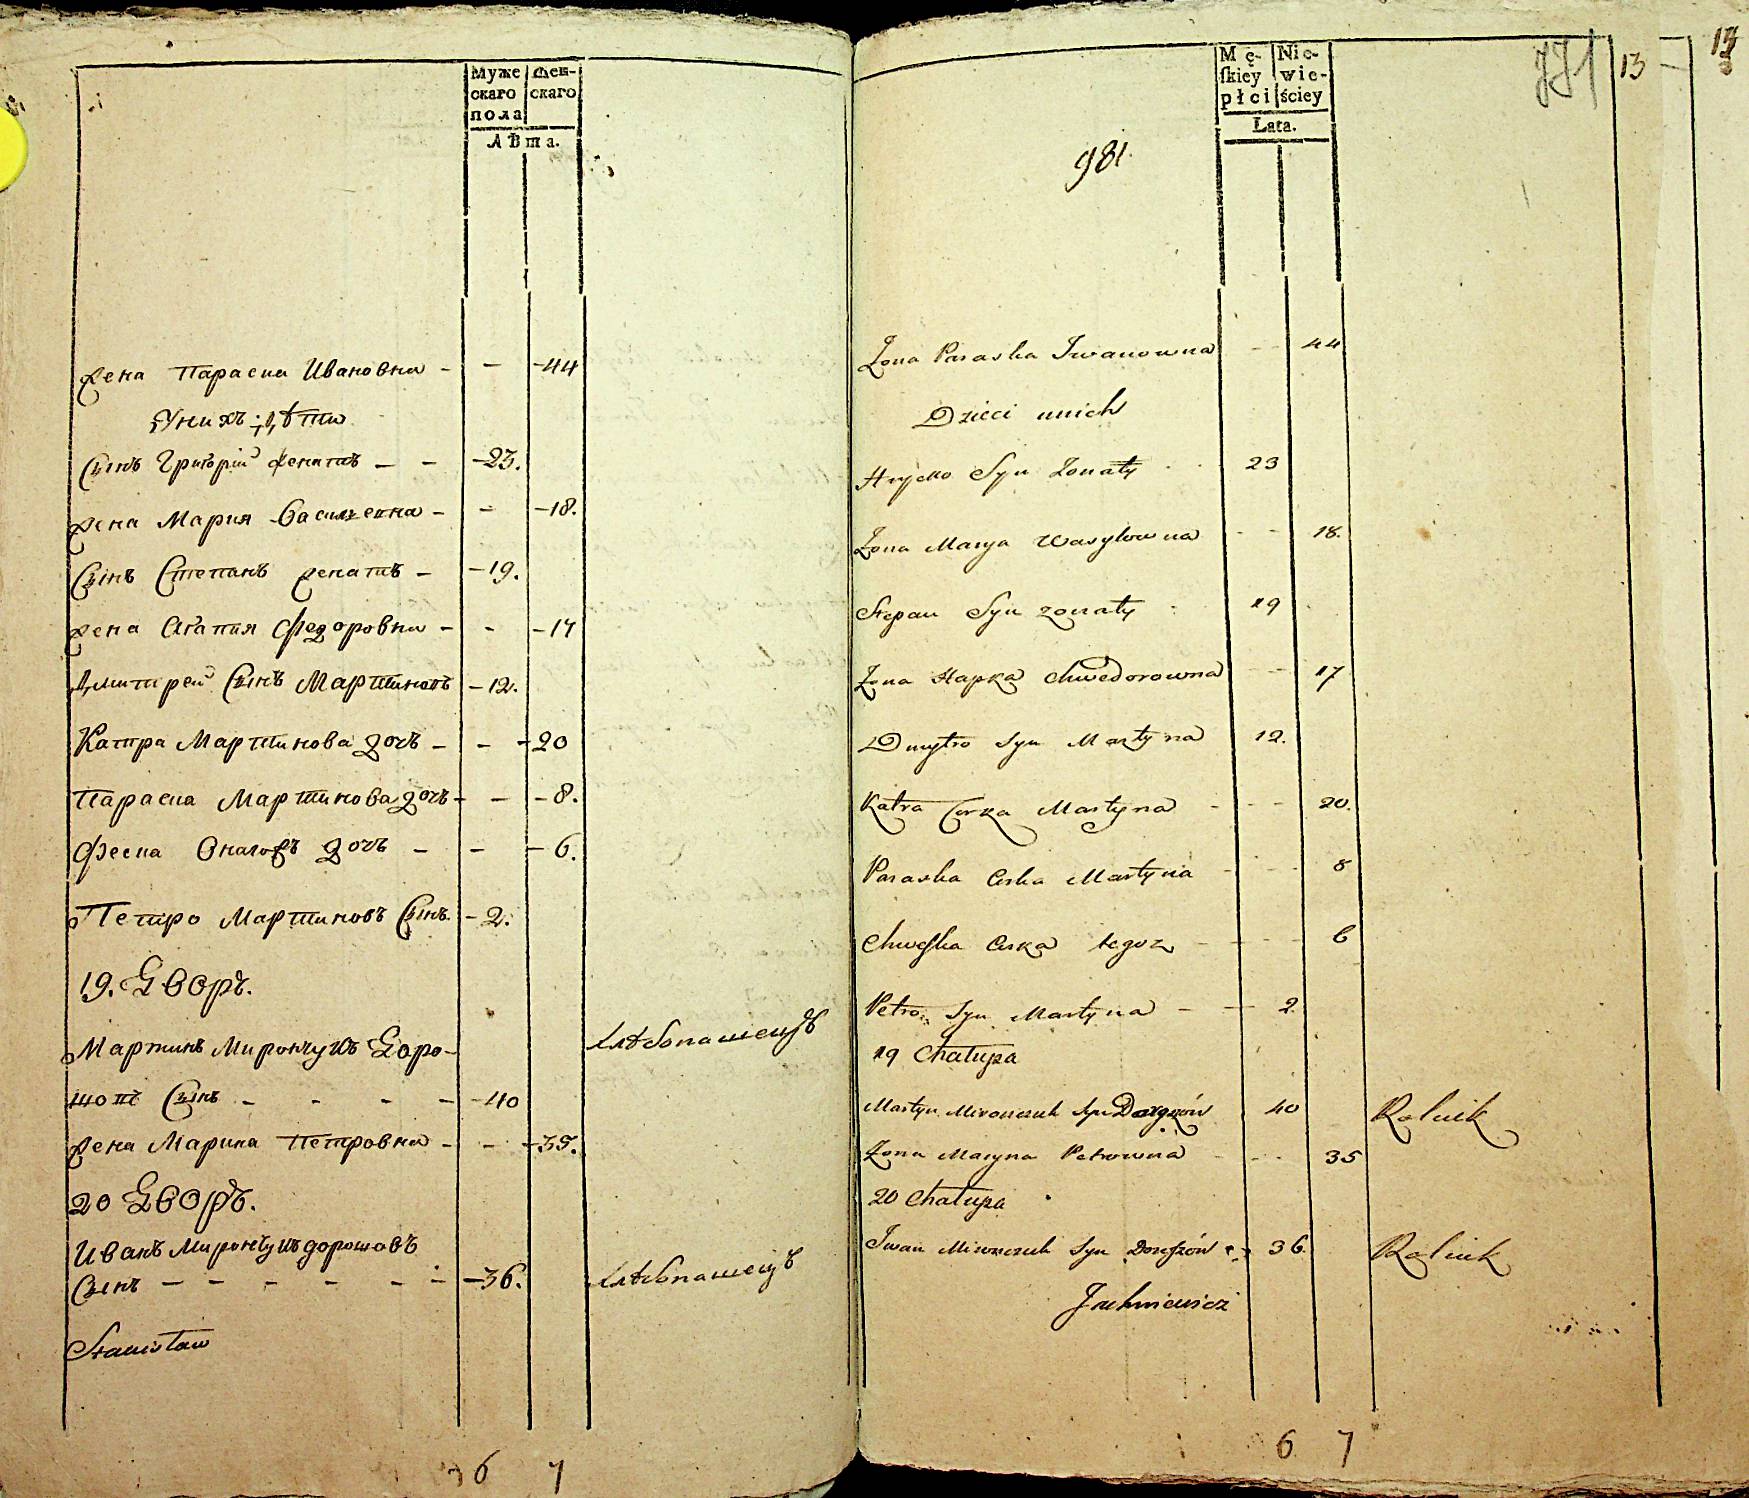 Муже Жен-
скаго скаго
пола
Лѣта.
жена Параска Ивановна - - -44
Уних дѣти
Сынъ Григорій женатъ - - -23.
жена Мария Васильевна - - -18.
Сынъ Степанъ женатъ - -19.
жена Агапия Федоровна - - -17
Дмитрей Сынъ Мартиновъ -12.
Катра Мартинова дочь - - -20
Параска Мартинова дочь - - -8.
Феска Онагожъ дочь - - -6.
Петро Мартиновъ Сынъ. -2.
19. Дворъ.
Мартинъ Мирончукъ Доро-
шовъ Сынъ - - - - -40
Хлѣбопашецъ
жена Марина Петровна - - -35.
20 Дворъ.
Иванъ Мирончукъ дорошовъ
Сынъ - - - - - - -36.
Хлѣбопашецъ
Stanisław
6 7
Mę- Nie-
ſkiey wie-
płci ściey
Lata.
981.
13
Żona Paraska Iwanowna - - 44
Dzieci unich
Hrycko Syn Żonaty 23
Żona Marya Wasylowna - - 18.
Stepan Syn żonaty 19
Żona Hapka Chwedorowna - - 17
Dmytro Syn Martyna 12.
Katra Corka Martyna - - - 20.
Paraska Corka Martyna - - - 8
Chweſka Corka tegoż - - - 6
Petro Syn Martyna - - 2
19 Chałupa
Martyn Mironczuk Syn Doroszów 40 Rolnik
Żona Maryna Petrowna - - - 35
20 Chałupa
Iwan Mironczuk Syn Doroszów 36. Rolnik
Juchniewicz
6 7